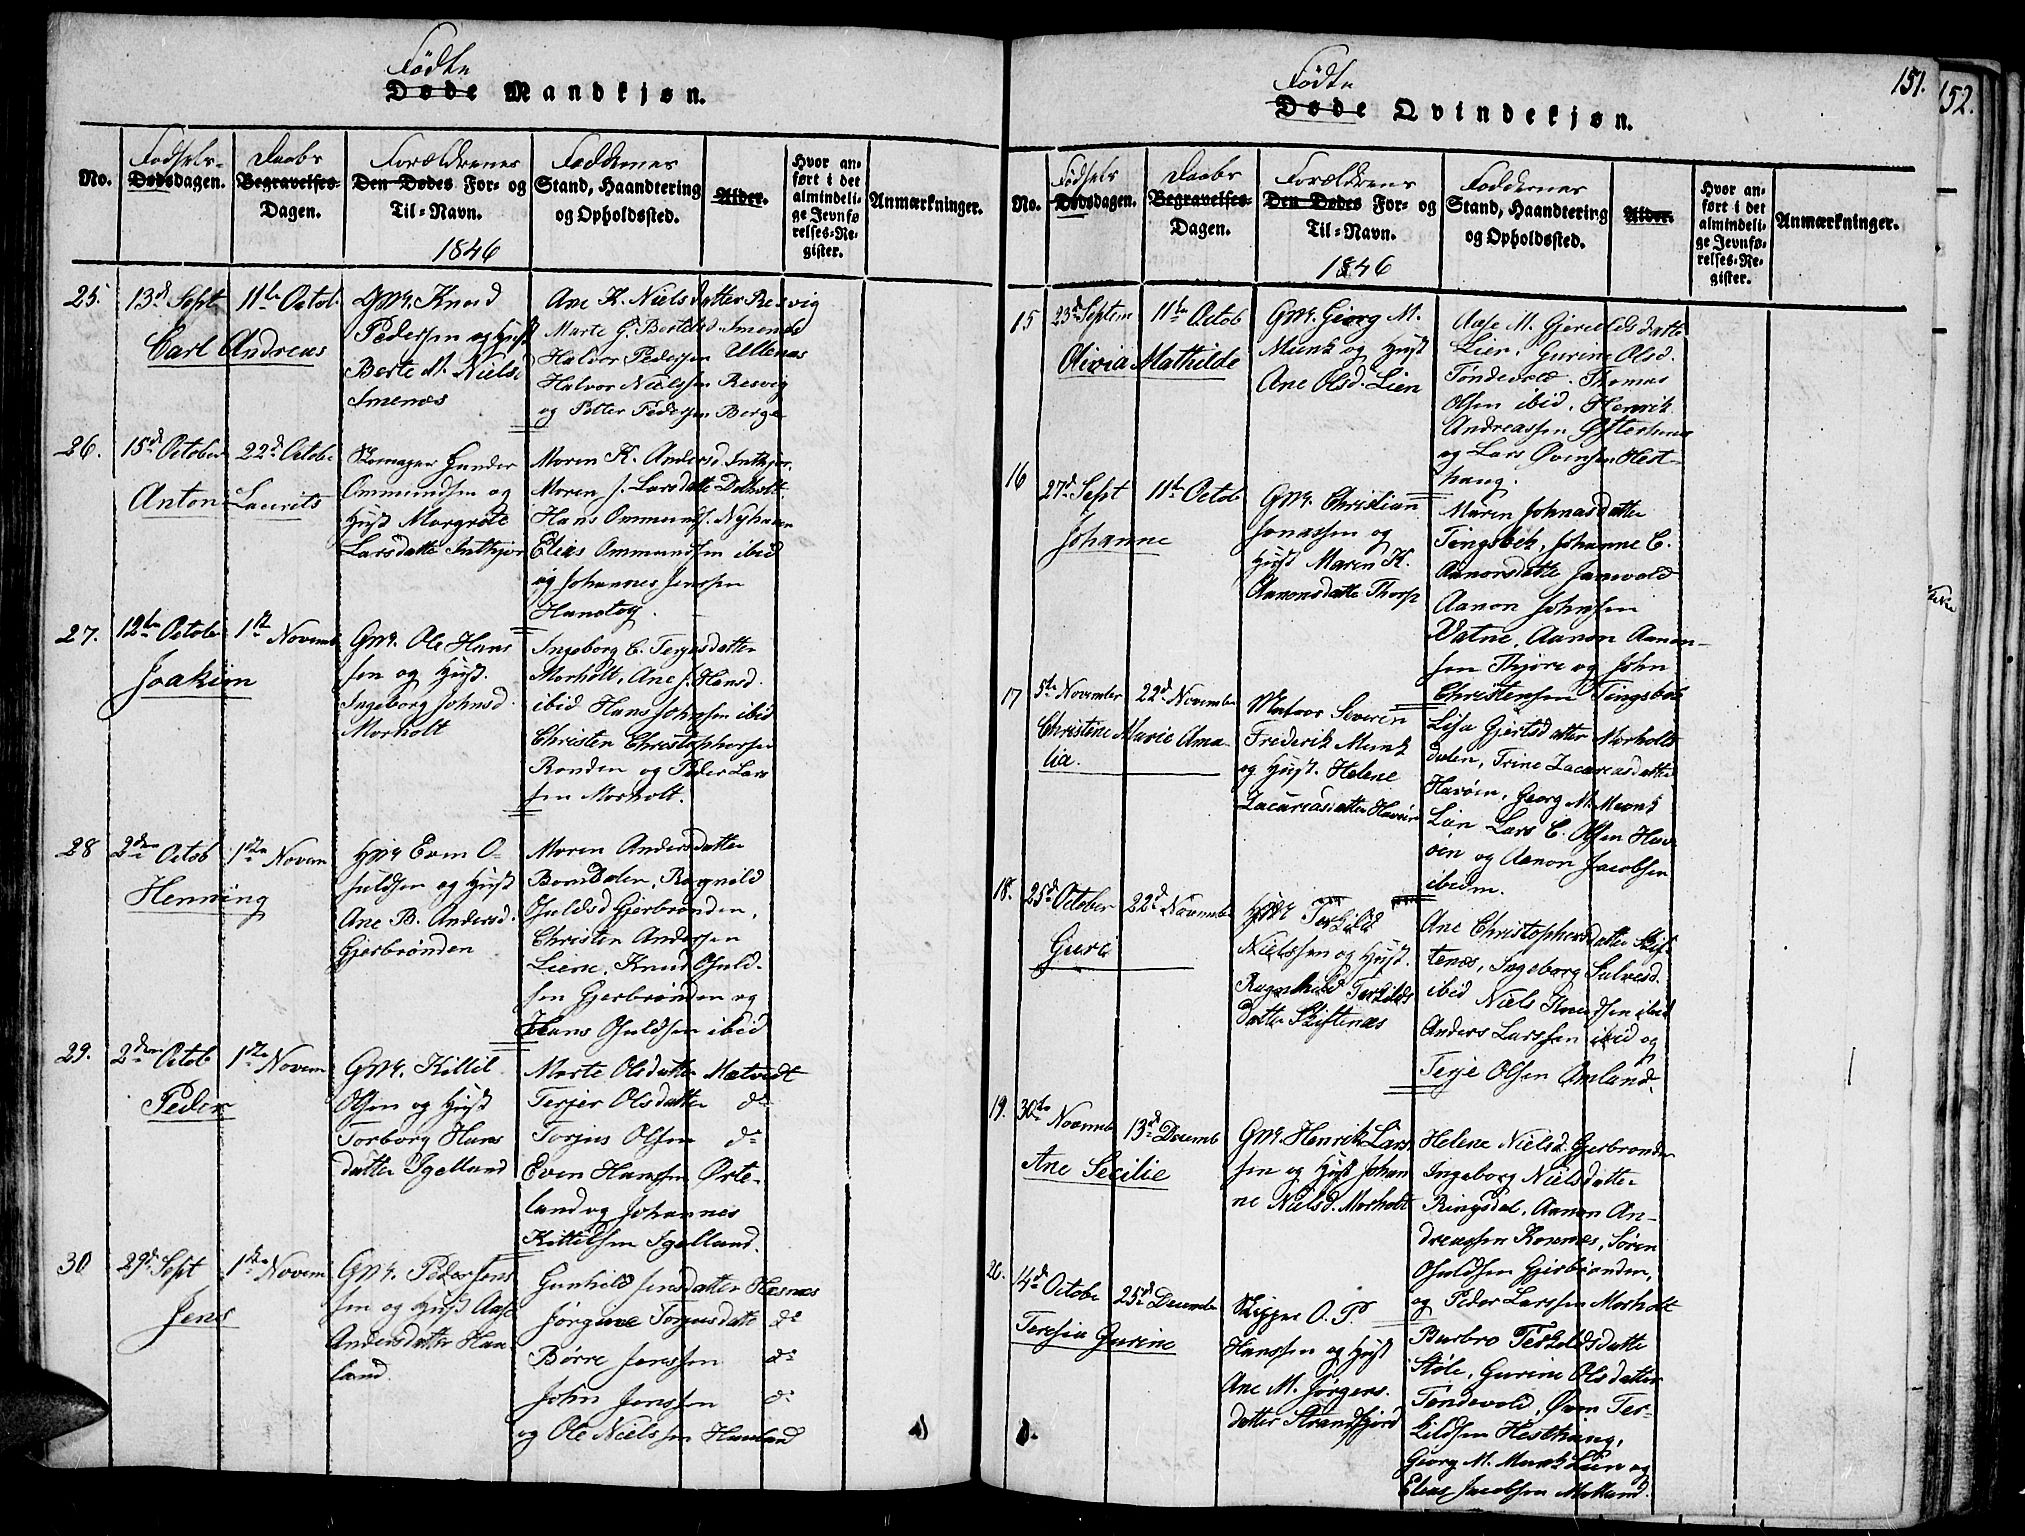 Fødte
Døde Mandkjøn.
No.
Fødsels-
Dødsdagen.
Daabs
Begravelses-
Dagen.
Forældrenes
Den Dødes For- og
Til-Navn.
1846
Faddernes
Stand, Haandtering
og Opholdssted.
Alder.
Hvor an-
ført i det
almindeli-
ge Jevnfø
relses-Re-
gister.
Anmærkninger.
25. 13d Sept 11te Octob.
Carl Andreas
Gmd. Knud
Pedersen og Hust
Berte M. Nielsd
Smenes
Ane K. Nielsdatter Resvig
Marte G. Bertelsd. Smenes
Halvor Pedersen Ullenes
Halvor Nielsen Resvig
og Petter Pedersen Berge
26. 15d October 22d Octob.
Anton Laurits
Skomager Gunder
Ommundsen og
Hust Margrete
Larsdatte Inthjor
Maren K. Andersd. Inthjor.
Maren J. Larsdatte Dalholt
Hans Ommunds. Nyhaven
Elias Ommundsen ibid
og Johannes Jenssen
Hanstog.
27. 12te Octob 1te Novemb
Joakim
Gmd. Ole Hans
sen og Hust.
Ingeborg Johnsd.
Morholt
Ingeborg C. Terjesdatter
Morholt, Ane J. Hansd.
ibid Hans Johnsen ibid
Christen Christophersen
Randen og Peder Lars
sen Morholt.
28 2den Octob 1ste Novem
Henning
Hmd Even O-
suldsen og Hust
Ane B. Andersd.
Gjerbrønden
Maren Andersdatter
Bomdalen, Ragnild
Osuldsd Gjerbrønden,
Christen Andersen
Liene, Knud Osuld-
sen Gjerbrønden og
Hans Osuldsen ibid
29. 2den Octob 1ste Novem
Peder
Gmd. Killil
Olsen og Hust
Torborg Hans
datter Igelland
Marte Olsdatter Mætvedt
Terjer Olsdatter do
Torjus Olsen do
Even Hansen Ørte-
land og Johannes
Kittelsen Igelland.
30 29d Sept 1ste Novem
Jens
Gmd. Peder Jens
sen og Hust Aase
Andersdatter Hau
land.
Gunhild Jensdatter Hæsnæs
Jørgine Torjusdatt do
Børre Jenssen do
John Jenssen do
og Ole Nielssen Hauland
151.
152.
Fødte
Døde Qvindekjøn.
No.
Fødsels
Dødsdagen.
Daabs
Begravelses-
Dagen.
Forældrens
Den Dødes For- og
Til-Navn.
1846
Faddernes
Stand, Haandtering
og Opholdssted.
Alder.
Hvor an-
ført i det
almindeli-
ge Jevnfø-
relses-Re-
gister.
Anmærkninger.
15 23d Septem 11te Octob
Olivia Mathilde
Gmd. Georg M.
Munk og Hust
Ane Olsd. Lien
Aase M. Gjeruldsdatte
Lier, Gurine Olsd.
Tøndevold. Thomas
Olsen ibid, Henrik
Andreassen
og Lars Øvensen Hest-
haug.
16 27d Sept 11te Octob
Johanne
Gmd. Christian
Jonassen og
Hust Maren K.
Aanonsdatte Thorp
Maren Johnasdatter
Tingsbek, Johanne C.
Aanonsdatte Janvold
Aanon Johnsen
Vatne, Aanon Aanon-
sen Thjore og John
Christensen Tingsbek
17 5te November 22d Novembe
Christine Marie Ama-
lia.
Matros Severin
Frederik Munk
og Hust. Helene
Zacariasdatter Havøien
Lisa Gjertsdatter Morholt
dalen, Trine Zacariasdatte
Havøin, Georg M. Munk
Lien Lars C. Olsen Hav
øien og Aanon Jacobsen
ibidm.
18. 25d October 22d Novembe
Guri
Hmd Terkild
Nielssen og Hust.
Ragnhild Terkilds
datter Skiftenæs
Ane Christophersdatter Skif
tenæs, Ingeborg Salvesd.
ibid Niels Knudsen ibid
Anders Larssen ibid og
Terje Olsen Omland.
19. 30te Novemb 13d Decemb
Ane Secilie
Gmd. Henrik Lars
sen og Hust Johan
ne Nielsd. Morholt
Helene Nielsd. Gjerbrønden
Ingeborg Nielsdatter
Ringsdal, Aanon An-
dreassen Kosenæs, Søren
Osuldsen Gjerbrønden,
og Peder Larssen Morholt
20. 4d Octobe 25d Decembe
Teresia Gurine
Skipper O. P.
Hanssen og Hust
Ane M. Jørgens-
datter Strandfjord
Barbro Terkeldsdatte
Støle, Gurine Olsdatter
Tøndevold, Øven Ter-
kildsen Hesthaug,
Georg M. Munk Lien og
Elias Jacobsen Molland.